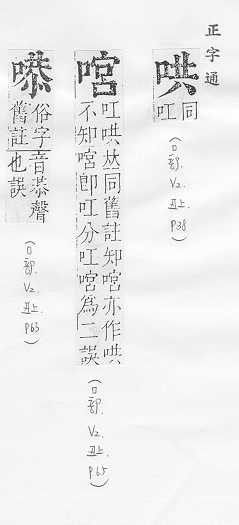 正字通
哄
同
叿
(口部. V2. 丑上. P38)
叿哄𠀤同舊註知亦作哄
不知即叿分叿為二誤
(口部. V2. 丑上. P65)
俗字音恭聲
舊註也誤
(口部. V2. 丑上. P63)